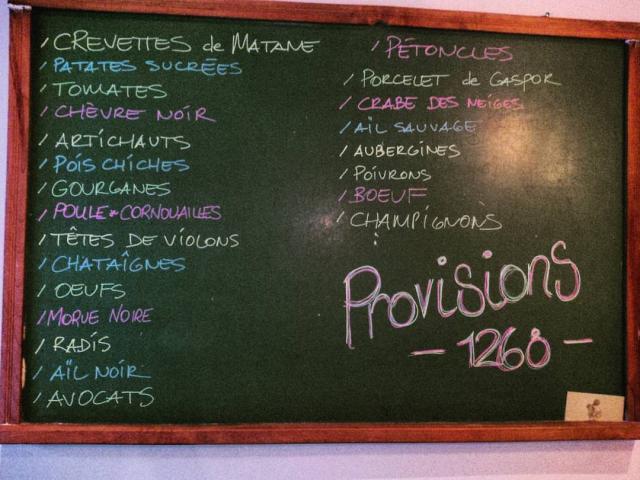 / CREVETTES de MATANE
/ PATATES SUCRÉES
/ TOMATES
/ CHÈVRE NOIR
/ ARTICHAUTS
/ POIS CHICHES
/ GOURGANES
/ POULE + CORNOUAILLES
/ TÊTES DE VIOLONS
/ CHATAÎGNES
/ OEUFS
/ MORUE NOIRE
/ RADIS
/ AÏL NOIR
/ AVOCATS
/ PÉTONCLES
/ PORCELET de GASPOR
/ CRABE DES NEIGES
/ AÏL SAUVAGE
/ AUBERGINES
/ POIVRONS
/ BOEUF
/ CHAMPIGNONS
Provisions
- 1268 -